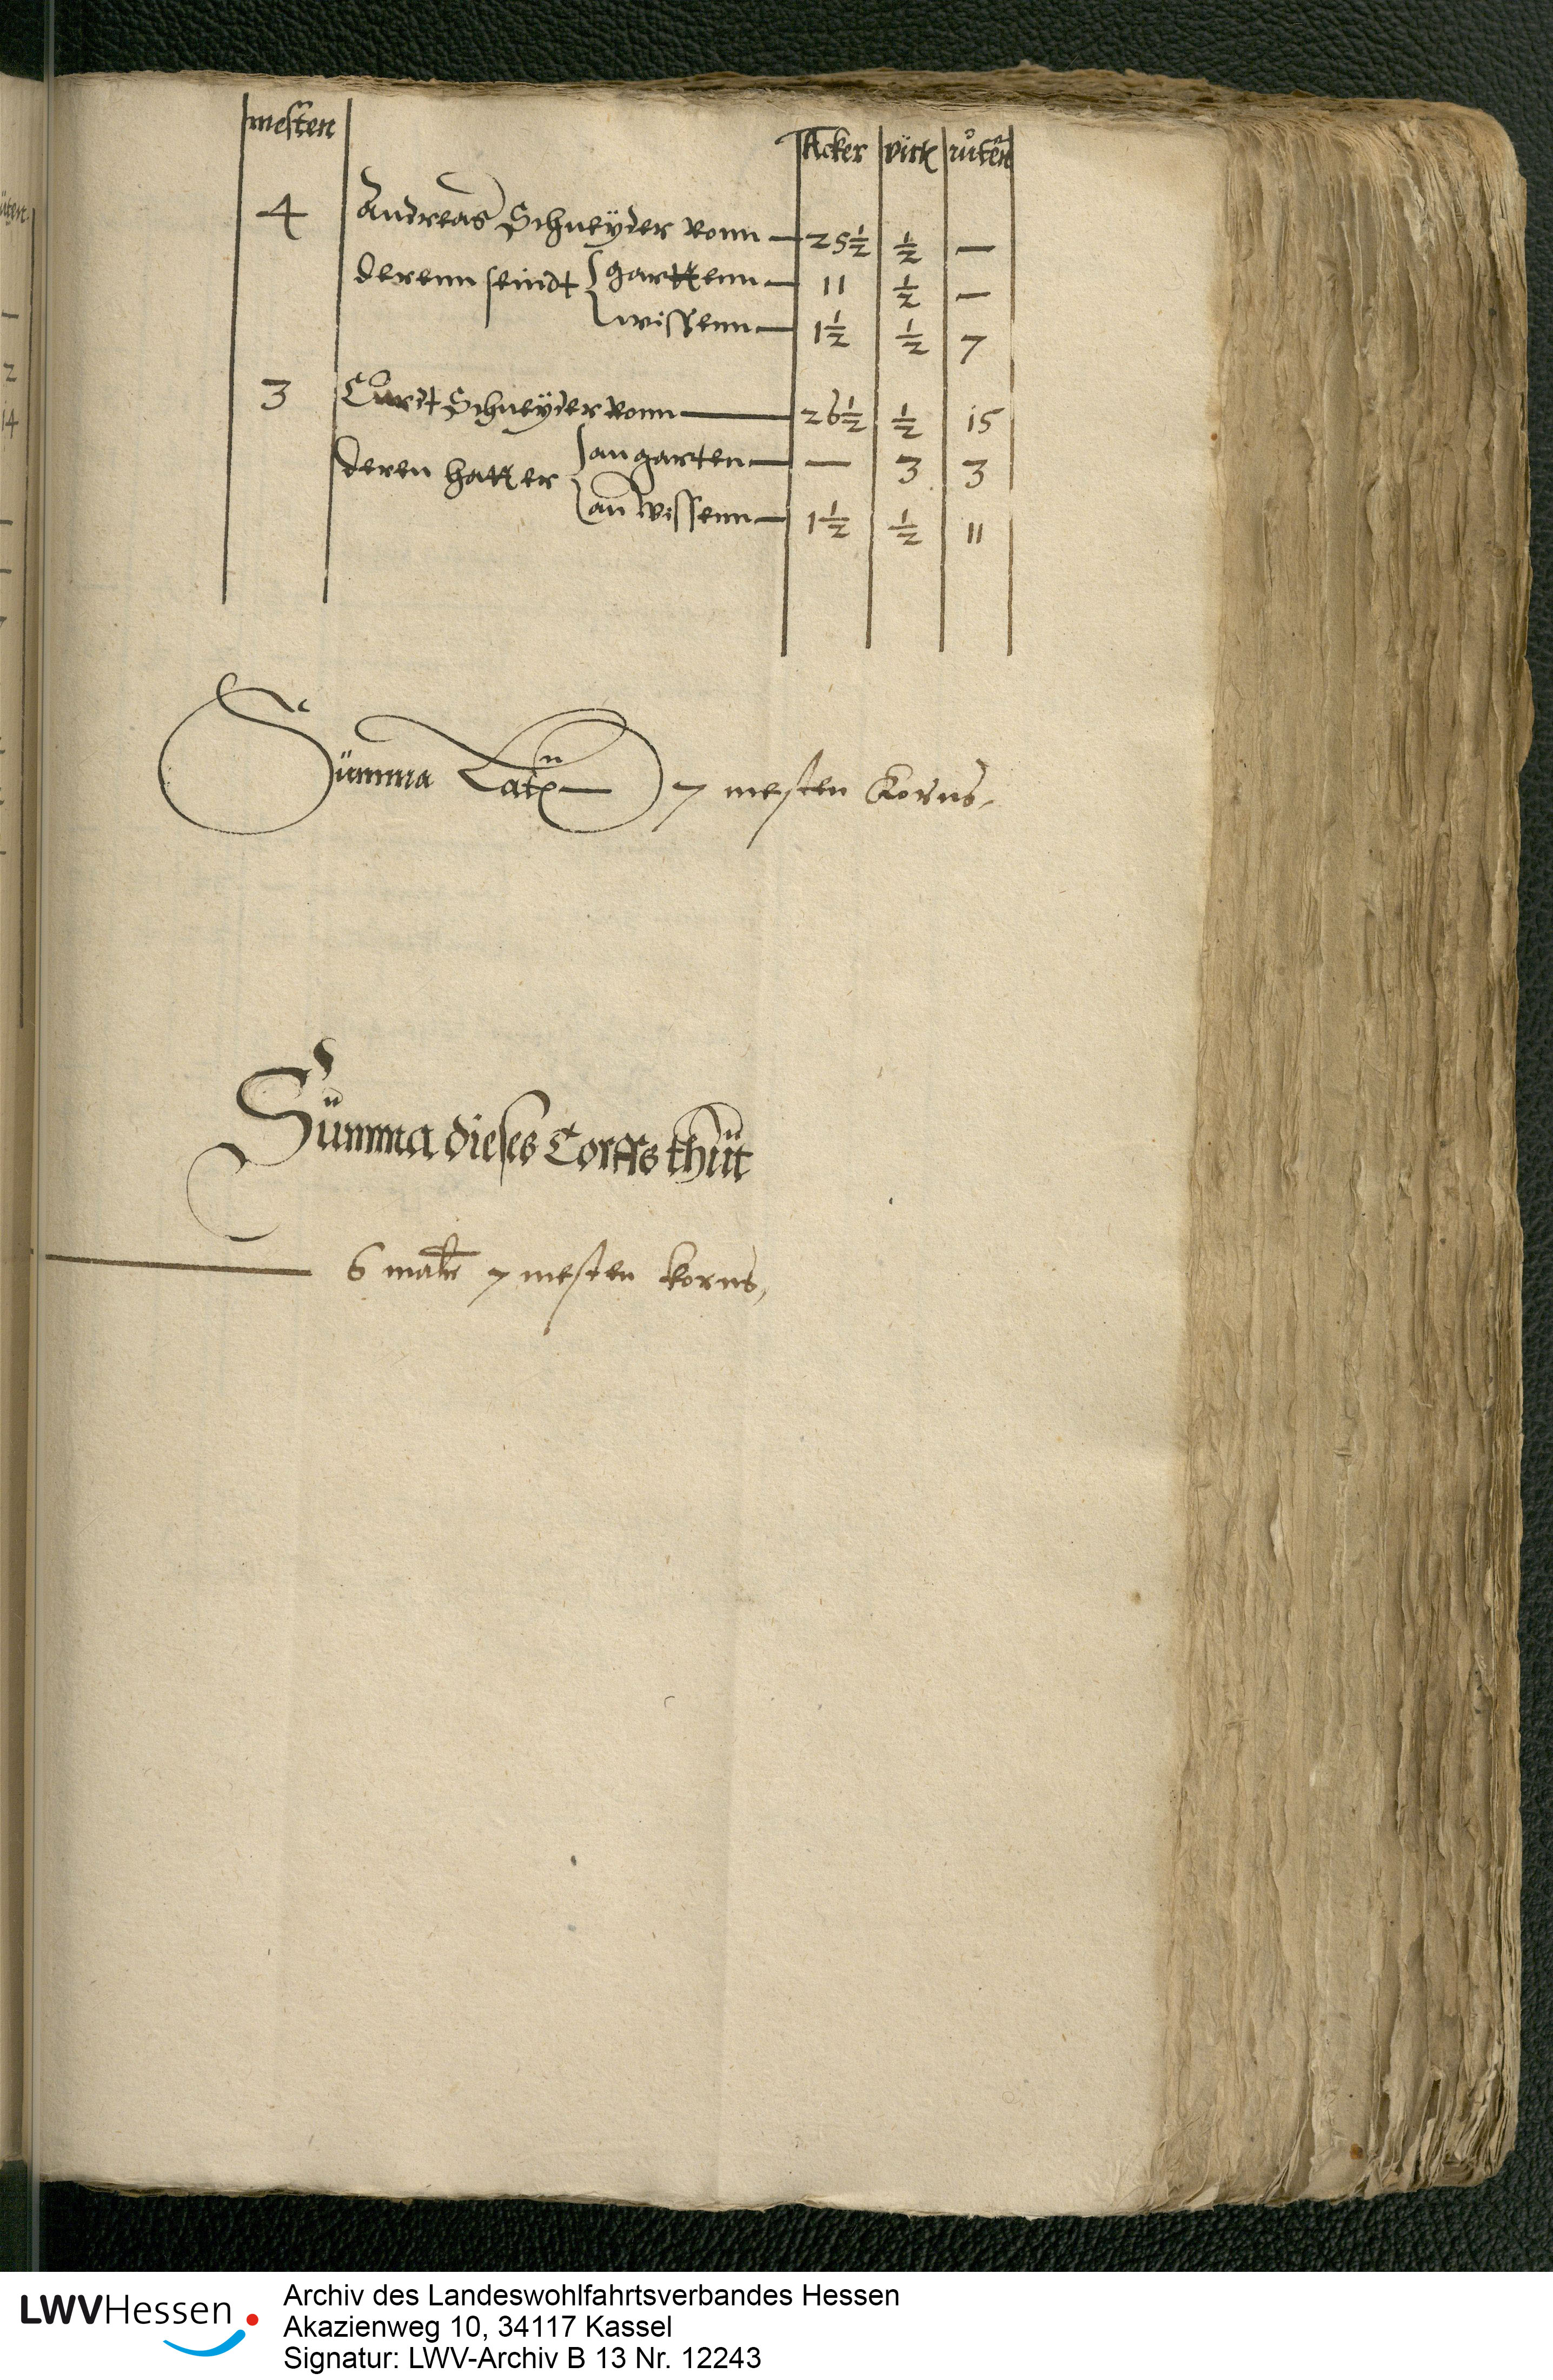 mesten Acker virt ruten
4 Andreas Schneyder vonn — 25½ ½ —
derenn seindt garttenn — 11 ½ —
wissenn — 1½ ½ 7
3 Curdt Schneyder vonn — 26½ ½ 15
deren hatt er an garten — — 3 3
an wissenn — 1½ ½ 11
Summa 7 mesten Korns
Summa dieses Dorffs thut
6 7 mesten korns
LWVHessen
Archiv des Landeswohlfahrtsverbandes Hessen
Akazienweg 10, 34117 Kassel
Signatur: LWV-Archiv B 13 Nr. 12243